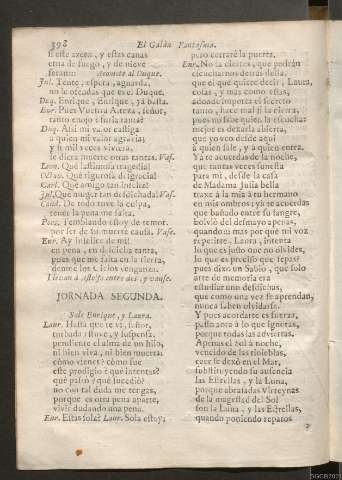 398 El Galàn Fantasma.
si este azero, y estas canas
etna de fuego, y de nieve
seràn Acomete al Duque.
Jul. Tente, espera, aguarda,
no le ofendas que es el Duque.
Duq. Enrique, Enrique, ya basta.
Enr. Pues Vuestra Alteza, señor,
tanto enojo? furia tanta?
Duq. Assi mi valor castiga
à quien mi valor agravia;
y si mil vezes viviera,
le diera muerte otras tantas. Vas.
Leon. Què lastimosa tragedia!
Octav. Què rigurosa desgracia!
Carl. Què amigo tan infelize!
Jul. Què muger tan desdichada! Vas.
Cand. De todo tuve la culpa,
tener la pena me falta.
Porc. Temblando estoy de temor
por ser de su muerte causa. Vas.
Enr. Ay infelice de mi!
en pena, en desdicha tanta,
pues que me falta en la tierra,
denme los Cielos venganza.
Llevan à Astolfo entre dos, y vanse.
JORNADA SEGUNDA.
Sale Enrique, y Laura.
Laur. Hasta que te vì, señor,
turbada estuve, y suspensa,
pendiente el alma de un hilo,
ni bien viva, ni bien muerta:
cómo vienes? cómo fue
este prodigio? què intentas?
què passò? què sucediò?
no con tal duda me tengas,
porque es otra pena aparte,
vivir dudando una pena.
Enr. Estàs sola? Laur. Sola estoy;
pero cerrarè la puerta.
Enr. No la cierres, que podràn
escucharnos detràs della,
que el que quiere decir, Laura,
cosas, y mas como estas,
adonde importa el secreto
tanto, hace mal si la cierra,
pues no sabe quien le escucha:
mejor es dexarla abierta,
que yo veo desde aqui
à quien sale, y à quien entra.
Ya te acuerdas de la noche,
que tantas vezes funesta
para mi, desde la casa
de Madama Julia bella
traxe à la mia à tu hermano
en mis ombros; ya te acuerdas
que bañado entre su sangre,
bolviò del desmayo apenas,
quando: mas por què mi voz
repetirte, Laura, intenta
lo que es justo que no olvides,
lo que es preciso que sepas?
pues dixo un Sabio, que solo
arte de memoria era
estudiar uno desdichas,
que como una vez se aprendan,
nunca saben olvidarse.
Y pues acordarte es fuerza,
passo aora à lo que ignoras,
porque todas las adviertas.
Apenas el Sol à noche,
vencido de las tinieblas,
caer se dexò en el Mar,
substituyendo su ausencia
las Estrellas, y la Luna,
porque abrasadas Virreynas
de la magestad del Sol
son la Luna, y las Estrellas,
quando poniendo reparos